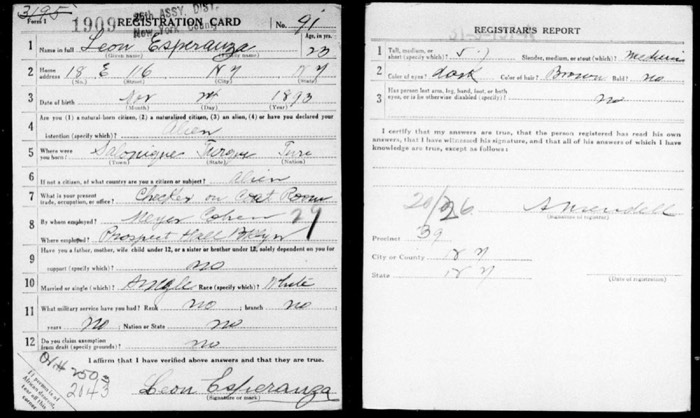 3195
Form 1
1909 REGISTRATION CARD
25th ASSY. DIST.
New York County
No. 91
1 Name in full Leon Esperanza
(Given name) (Family name)
Age, in yrs. 23
2 Home address 18 E 16 N Y N Y
(No.) (Street) (City) (State)
3 Date of birth 1893
(Month) (Day) (Year)
4 Are you (1) a natural-born citizen, (2) a naturalized citizen, (3) an alien, (4) or have you declared your
intention (specify which)? Alien
5 Where were you born? Salonique Turque
(Town) (State) (Nation)
6 If not a citizen, of what country are you a citizen or subject? Alien
7 What is your present trade, occupation, or office? Checker on Coat Room
29
8 By whom employed? Meyer Cohen
Where employed? Prospect Hall Bklyn
9 Have you a father, mother, wife, child under 12, or a sister or brother under 12, solely dependent on you for
support (specify which)? no
10 Married or single (which)? Single Race (specify which)? White
11 What military service have you had? Rank no ; branch no
years no ; Nation or State no
12 Do you claim exemption from draft (specify grounds)? no
I affirm that I have verified above answers and that they are true.
250
Leon Esperanza
(Signature or mark)
REGISTRAR'S REPORT
1 Tall, medium, or short (specify which)? 5.7 Slender, medium, or stout (which)? medium
2 Color of eyes? dark Color of hair? Brown Bald? no
3 Has person lost arm, leg, hand, foot, or both
eyes, or is he otherwise disabled (specify)? no
I certify that my answers are true, that the person registered has read his own
answers, that I have witnessed his signature, and that all of his answers of which I have
knowledge are true, except as follows:
20/26
(Signature of registrar)
Precinct 39
City or County N Y
State N Y
(Date of registration)